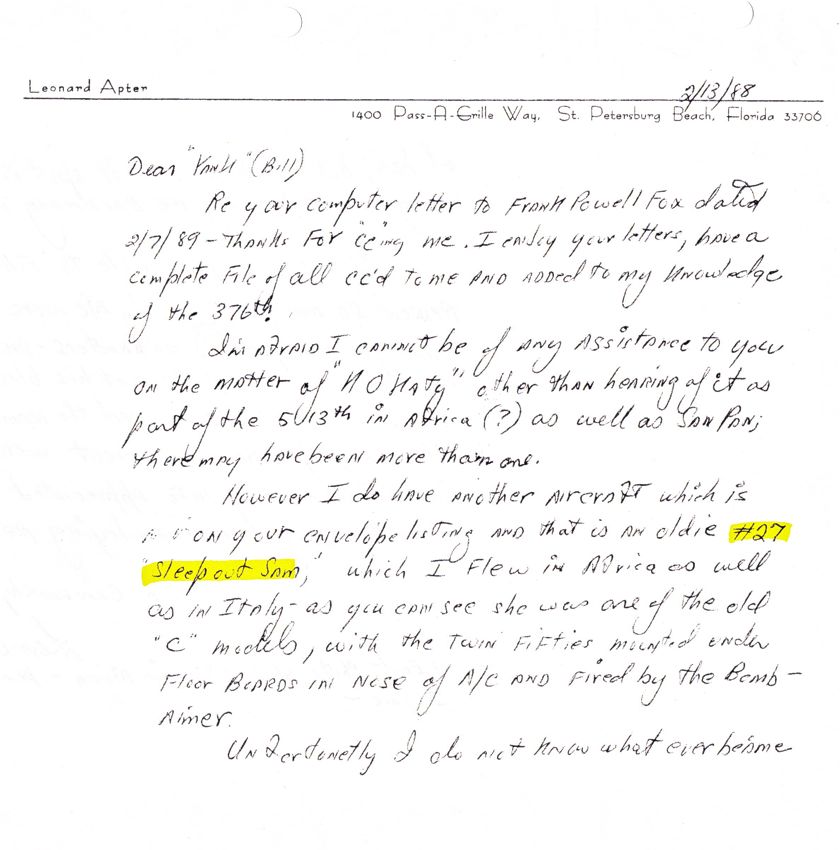 Leonard Apter
2/13/88
1400 Pass-A-Grille Way, St. Petersburg Beach, Florida 33706
Dear "Yank" (Bill)
Re your computer letter to Frank Powell Fox dated
2/7/89 - Thanks for "cc"ing me. I enjoy your letters, have a
complete file of all cc'd to me and added to my knowledge
of the 376th.
I'm afraid I cannot be of any assistance to you
on the matter of other than hearing of it as
part of the 513th in Africa (?) as well as San Pan;
there may have been more than one.
However I do have another aircraft which is
on your envelope listing and that is an oldie #27
"Sleepout Sam," which I flew in Africa as well
as in Italy - as you can see she was one of the old
"C" models, with the twin fifties mounted under
floor boards in nose of A/C and fired by the Bomb-
Aimer.
Unfortunetly I do not know what ever become